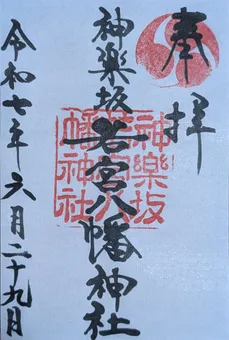 奉拝
神楽坂若宮八幡神社
神楽坂
若宮八
幡神社
令和七年六月二十九日